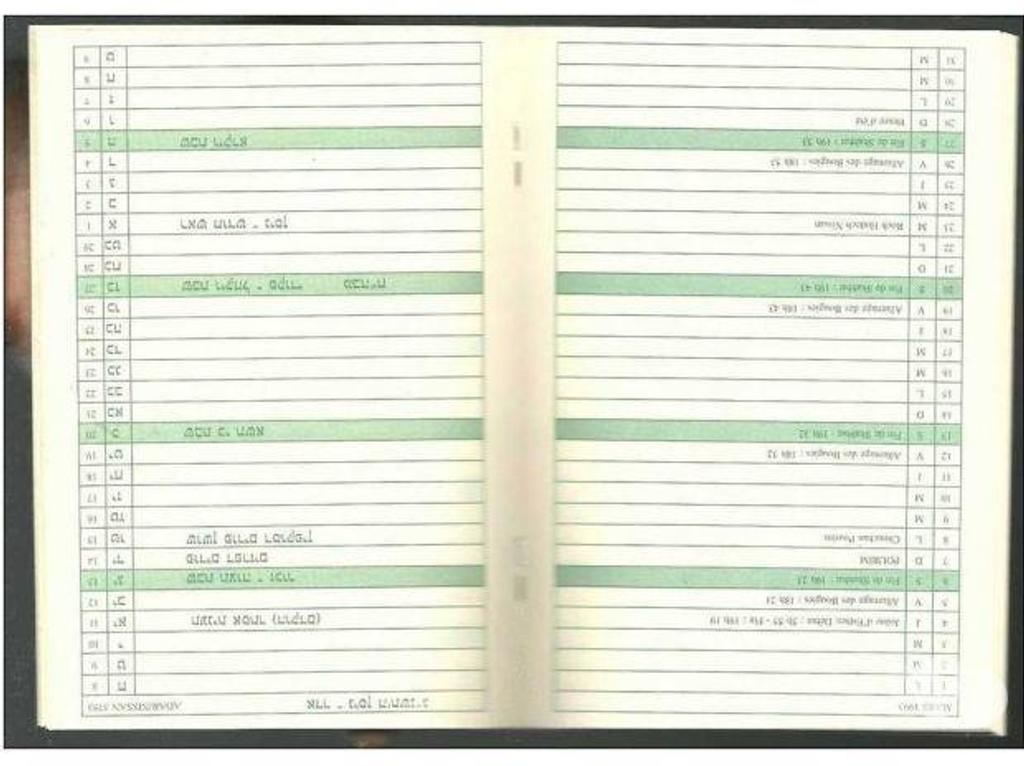 MARS 1993
1 L
2 M
3 M
4 J Jeûne d'Esther, Début : 5h 55 - Fin : 19h 19
5 V Allumage des Bougies : 18h 21
6 S Fin de Shabbat : 19h 21
7 D POURIM
8 L Chouchan Pourim
9 M
10 M
11 J
12 V Allumage des Bougies : 18h 32
13 S Fin de Shabbat : 19h 32
14 D
15 L
16 M
17 M
18 J
19 V Allumage des Bougies : 18h 43
20 S Fin de Shabbat : 19h 43
21 D
22 L
23 M Roch Hodech Nissan
24 M
25 J
26 V Allumage des Bougies : 18h 53
27 S Fin de Shabbat : 19h 53
28 D Heure d'été
29 L
30 M
31 M
אדר - ניסן ה'תשנ"ג ADAR/NISSAN 5753
ח 8
ט 9
י 10
תענית אסתר (מוקדם) יא 11
יב 12
שבת תצוה - זכור יג 13
פורים דפרזים יד 14
שושן פורים דמוקפין טו 15
טז 16
יז 17
יח 18
יט 19
שבת כי תשא כ 20
כא 21
כב 22
כג 23
כד 24
כה 25
כו 26
שבת ויקהל - פקודי מברה"ח כז 27
כח 28
כט 29
ראש חודש - ניסן א 1
ב 2
ג 3
ד 4
שבת ויקרא ה 5
ו 6
ז 7
ח 8
ט 9